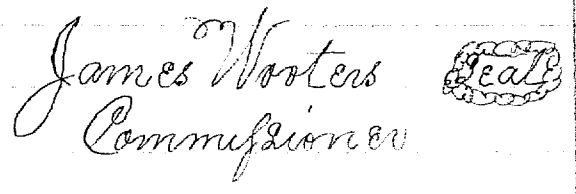 James Wooters Seal
Commissioner